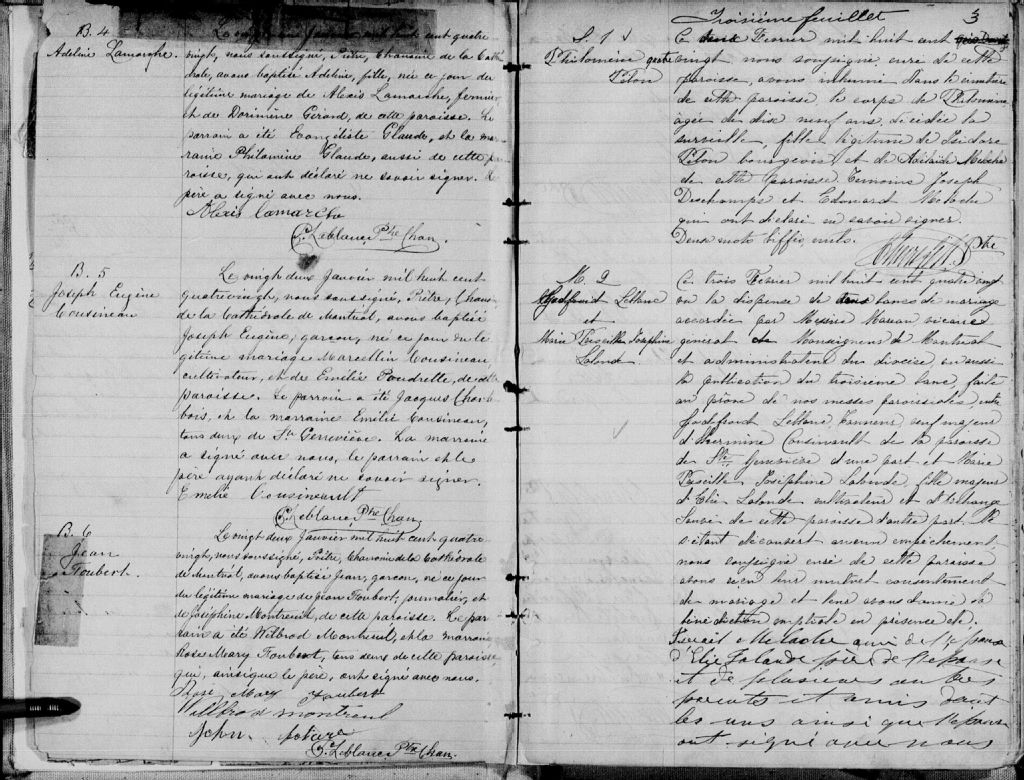 B. 4
Adeline Lamarche.
Le vingt un Janvier mil huit cent quatre
vingt, nous soussigné, Prêtre, Chanoine de la Cathé
drale, avons baptisé Adeline, fille, née ce jour du
légitime mariage de Alexis Lamarche, fermier
et de Dorimène Girard, de cette paroisse. Le
parrain a été Evangéliste Glaude, et la mar
raine Philomène Glaude, aussi de cette pa
roisse, qui ont déclaré ne savoir signer. Le
père a signé avec nous.
Alexis Lamarche
G. Leblanc, Ptre Chan.
B. 5
Joseph Eugène
Cousineau
Le vingt deux Janvier mil huit cent
quatrevingt, nous soussigné, Prêtre, Chanoine
de la Cathédrale de Montréal, avons baptisé
Joseph Eugène, garçon, né ce jour du lé
gitime mariage Marcellin Cousineau
cultivateur, et de Emilie Poudrette, de cette
paroisse. Le parrain a été Jacques Charle
bois, et la marraine Emilie Cousineau,
tous deux de Ste Geneviève. La marraine
a signé avec nous, le parrain et le
père ayant déclaré ne savoir signer.
Emélie Cousineault
G. Leblanc, Ptre Chan
B. 6
Jean
Foubert.
Le vingt deux Janvier mil huit cent quatre
vingt, nous soussigné, Prêtre, Chanoine de la Cathédrale
de Montréal, avons baptisé Jean, garçon, né ce jour
du légitime mariage de Jean Foubert, journalier, et
de Joséphine Montreuil, de cette paroisse. Le par
rain a été Wilbrod Montreuil, et la marraine
Rose Mary Foubert, tous deux de cette paroisse
qui, ainsi que le père, ont signé avec nous.
Rose Mary Foubert
Willbrod montreuil
John
G. Leblanc, Ptre Chan.
Troisième feuillet
3
S. 1
Philomène
Pilon
Ce Fevrier mil huit cent
quatre vingt nous soussigné, curé de cette
paroisse, avons inhumé dans le cimetière
de cette paroisse, le corps de Philomène
agée de dix neuf ans, décédée la
surveille, fille légitime de Isidore
Pilon bourgeois et de Adélaïde Meloche
de cette paroisse. Temoins Joseph
Deschamps et Edouard Meloche
qui ont déclaré ne savoir signer
Deux mots biffés nuls.
Ptre
M. 2
Godfroid Leblanc
et
Marie Priscille Josephine
Lalonde
Ce trois Fevrier mil huit cent quatre vingt
vu la dispense de deux bancs de mariage
accordée par Messire Moreau vicaire
general de Monseigneur de Montreal
et administrateur du diocèse, vu aussi
la publication du troisième banc faite
au prône de nos messes paroissiales, entre
Godefroid Leblanc, Tanneur, veuf majeur
d'Hermine Cousineault de la paroisse
de Ste Geneviève d'une part et Marie
Priscille Joséphine Lalonde, fille majeure
d'Elie Lalonde cultivateur et
de cette paroisse d'autre part. Ne
s'étant découvert aucun empêchement
nous soussigné curé de cette paroisse
avons reçu leur mutuel consentement
de mariage et leur avons donné la
bénédiction nuptiale en présence de
Meloche ami de l'époux
d'Elie Lalonde père de l'épouse
et de plusieurs autres
parents et amis dont
les uns ainsi que l'épouse
ont signé avec nous